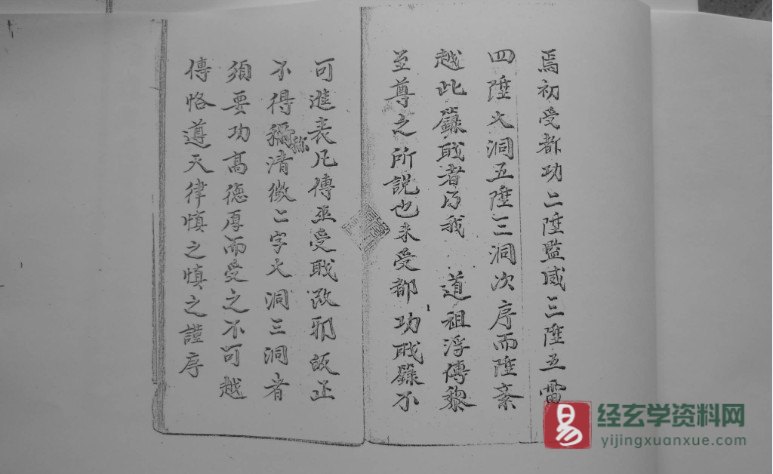 焉初受都功二陞監咸三陞五雷
四陞大洞五陞三洞次序而陞紊
越此籙戝者乃我　道祖浮傳
至尊之所說也未受都功戝籙不
可進表凡傳巫受戝改邪皈正
不得稱清微二字大洞三洞者
須要功高德厚而受之不可越
傳恪遵天律慎之慎之謹序
易
经玄学资料网
yijingxuanxue.com